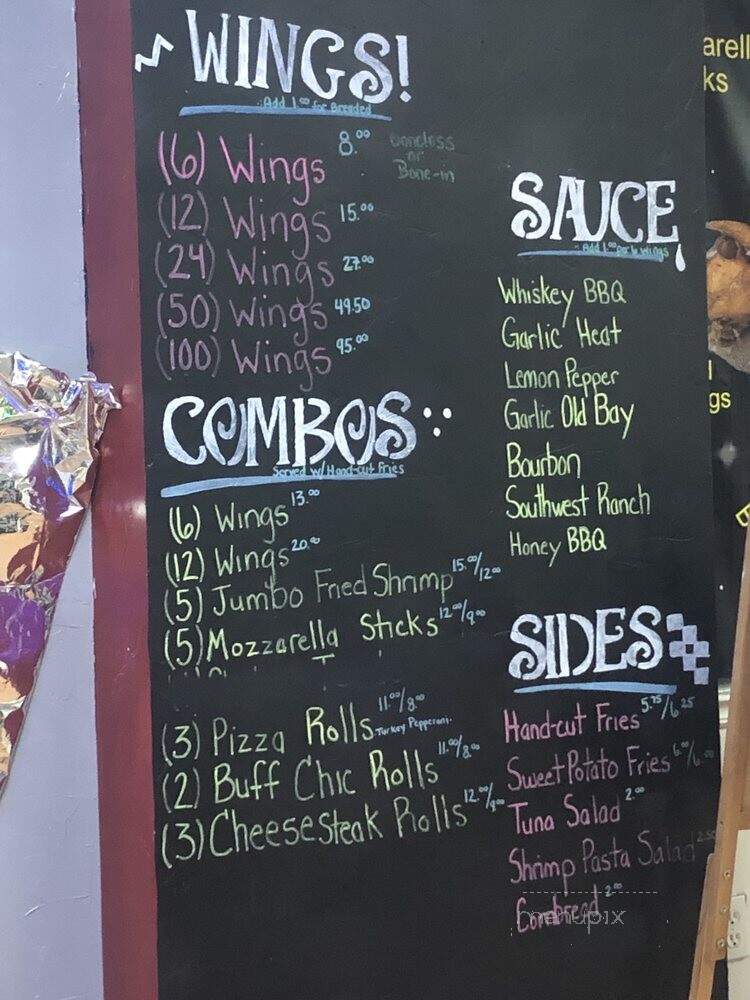 WINGS!
Add 1.00 for Breaded
(6) Wings 8.00 Boneless or Bone-in
(12) Wings 15.00
(24) Wings 27.00
(50) Wings 49.50
(100) Wings 95.00
COMBOS
Served w/ Hand-cut Fries
(6) Wings 13.00
(12) Wings 20.00
(5) Jumbo Fried Shrimp 15.00/12.00
(5) Mozzarella Sticks 12.00/9.00
(3) Pizza Rolls 11.00/8.00
Turkey Pepperoni
(2) Buff Chic Rolls 11.00/8.00
(3) Cheesesteak Rolls 12.00/9.00
SAUCE
Add 1.00 per 6 wings
Whiskey BBQ
Garlic Heat
Lemon Pepper
Garlic Old Bay
Bourbon
Southwest Ranch
Honey BBQ
SIDES
Hand-cut Fries 5.75/6.25
Sweet Potato Fries 6.00/
Tuna Salad 2.00
Shrimp Pasta Salad 2.50
Cornbread 2.00
menupix
arell
ks
gs